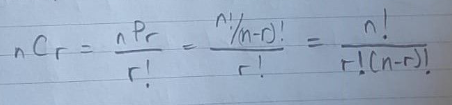 nCr = nPr / r! = n!/(n-r)! / r! = n! / r!(n-r)!